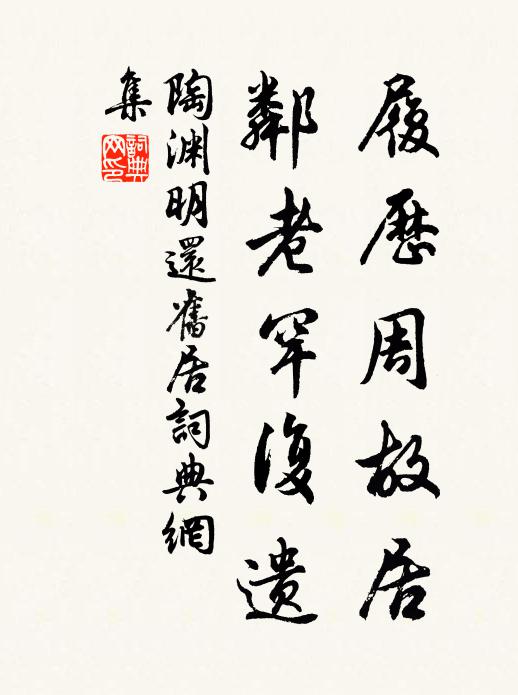 履歷周故居
鄰老罕復遺
陶淵明還舊居詞典網
集
詞典
网印